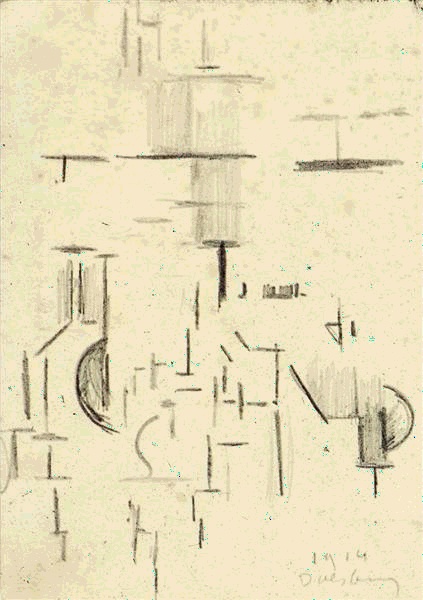 1914
Doesburg